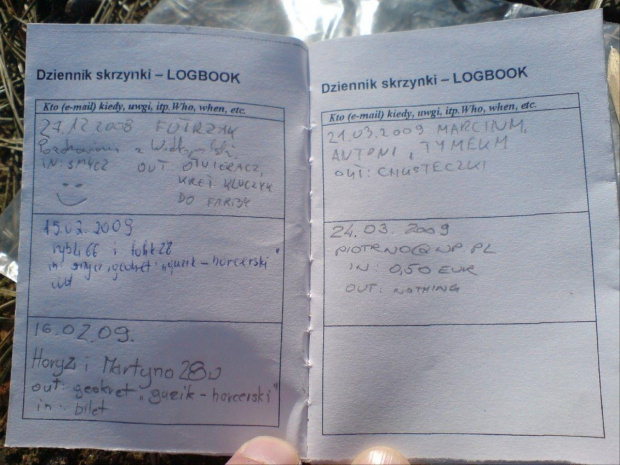 Dziennik skrzynki – LOGBOOK
Kto (e-mail) kiedy, uwgi, itp. Who, when, etc.
27.12.2008 FUTRZAK
IN SMYCZ OUT OTWIERACZ,
KRET KLUCZYK
DO FARBY
15.02.2009
rybki66 i
in smycz, geokret "guzik - harcerski"
16.02.09.
Horyzi i Martyno280
out: geokret "guzik - harcerski"
in: bilet
Dziennik skrzynki – LOGBOOK
Kto (e-mail) kiedy, uwgi, itp. Who, when, etc.
21.03.2009 MARCINM,
ANTONI, TYMEKM
OUT: CHUSTECZKI
24.03.2009
PIOTRNO@WP.PL
IN: 0,50 EUR
OUT: NOTHING